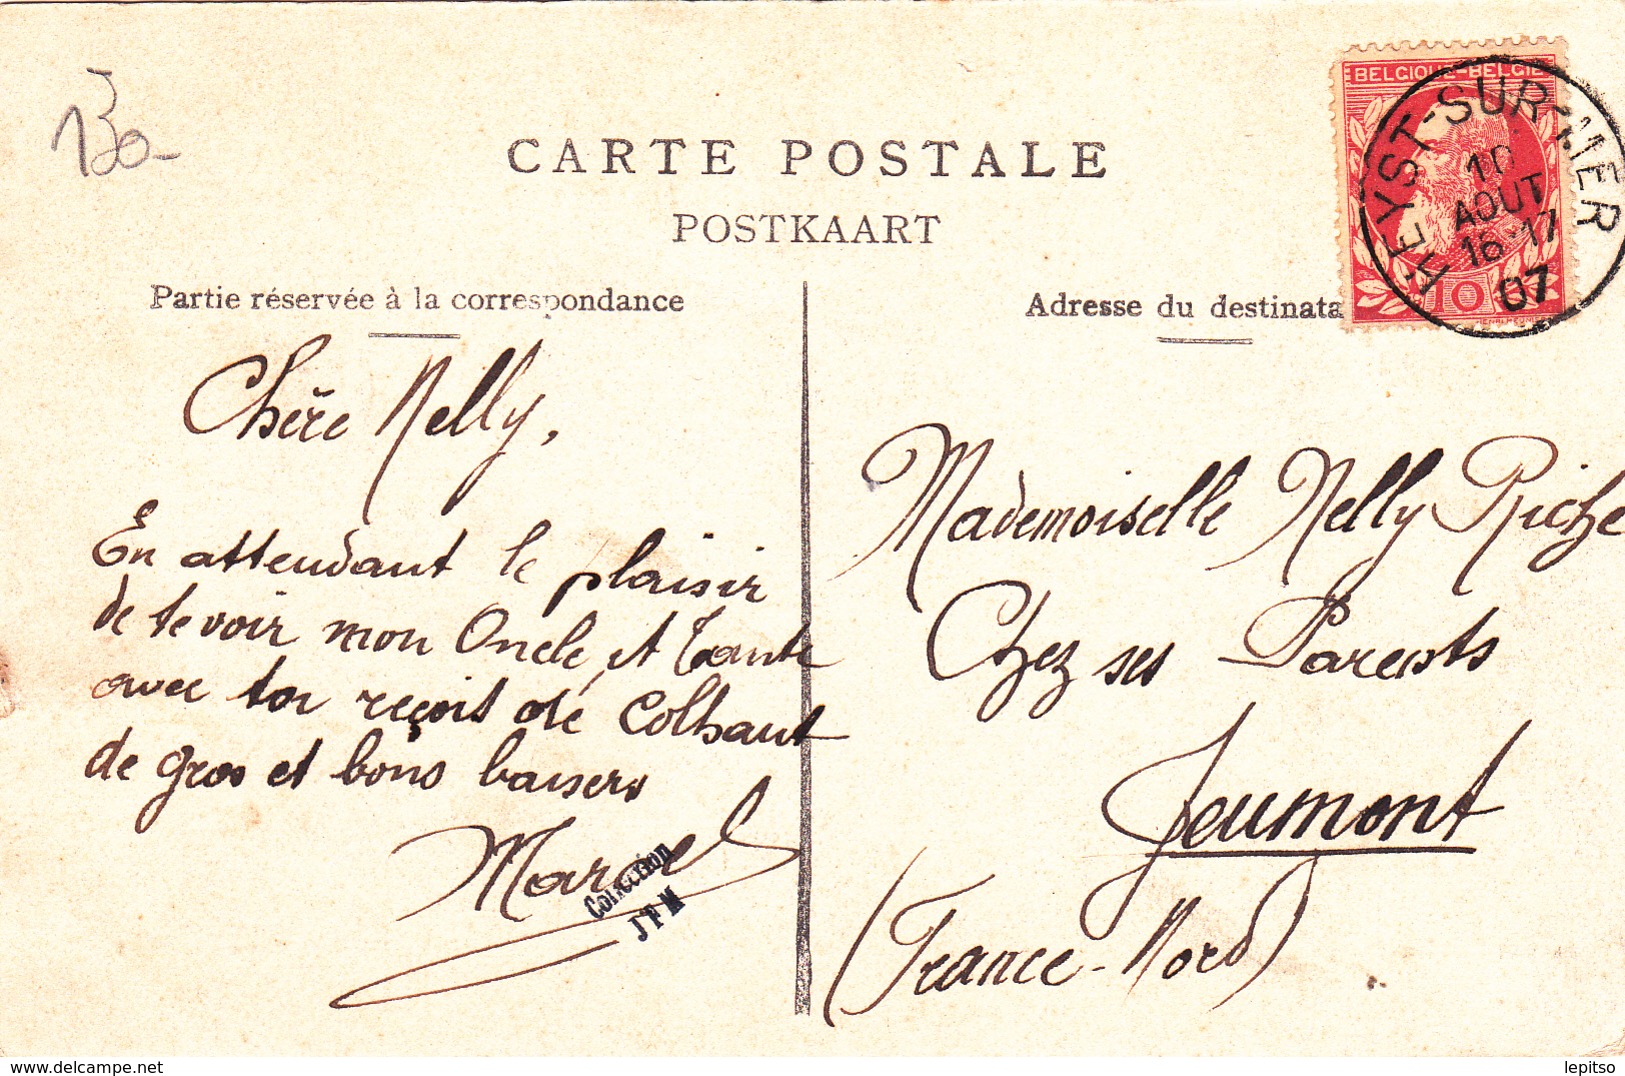 130-
CARTE POSTALE
POSTKAART
Partie réservée à la correspondance
Adresse du destinata
BELGIQUE-BELGIE
10
HEYST-SUR-MER
10
AOUT
16-17
07
Chère Nelly,
En attendant le plaisir
de te voir mon Oncle, et Tante
avec toi reçois de Colhaut
de gros et bons baisers
Marcel
Collection
JPM
Mademoiselle Nelly Riche
Chez ses Parents
Jeumont
(France-Nord)
delcampe.net
lepitso